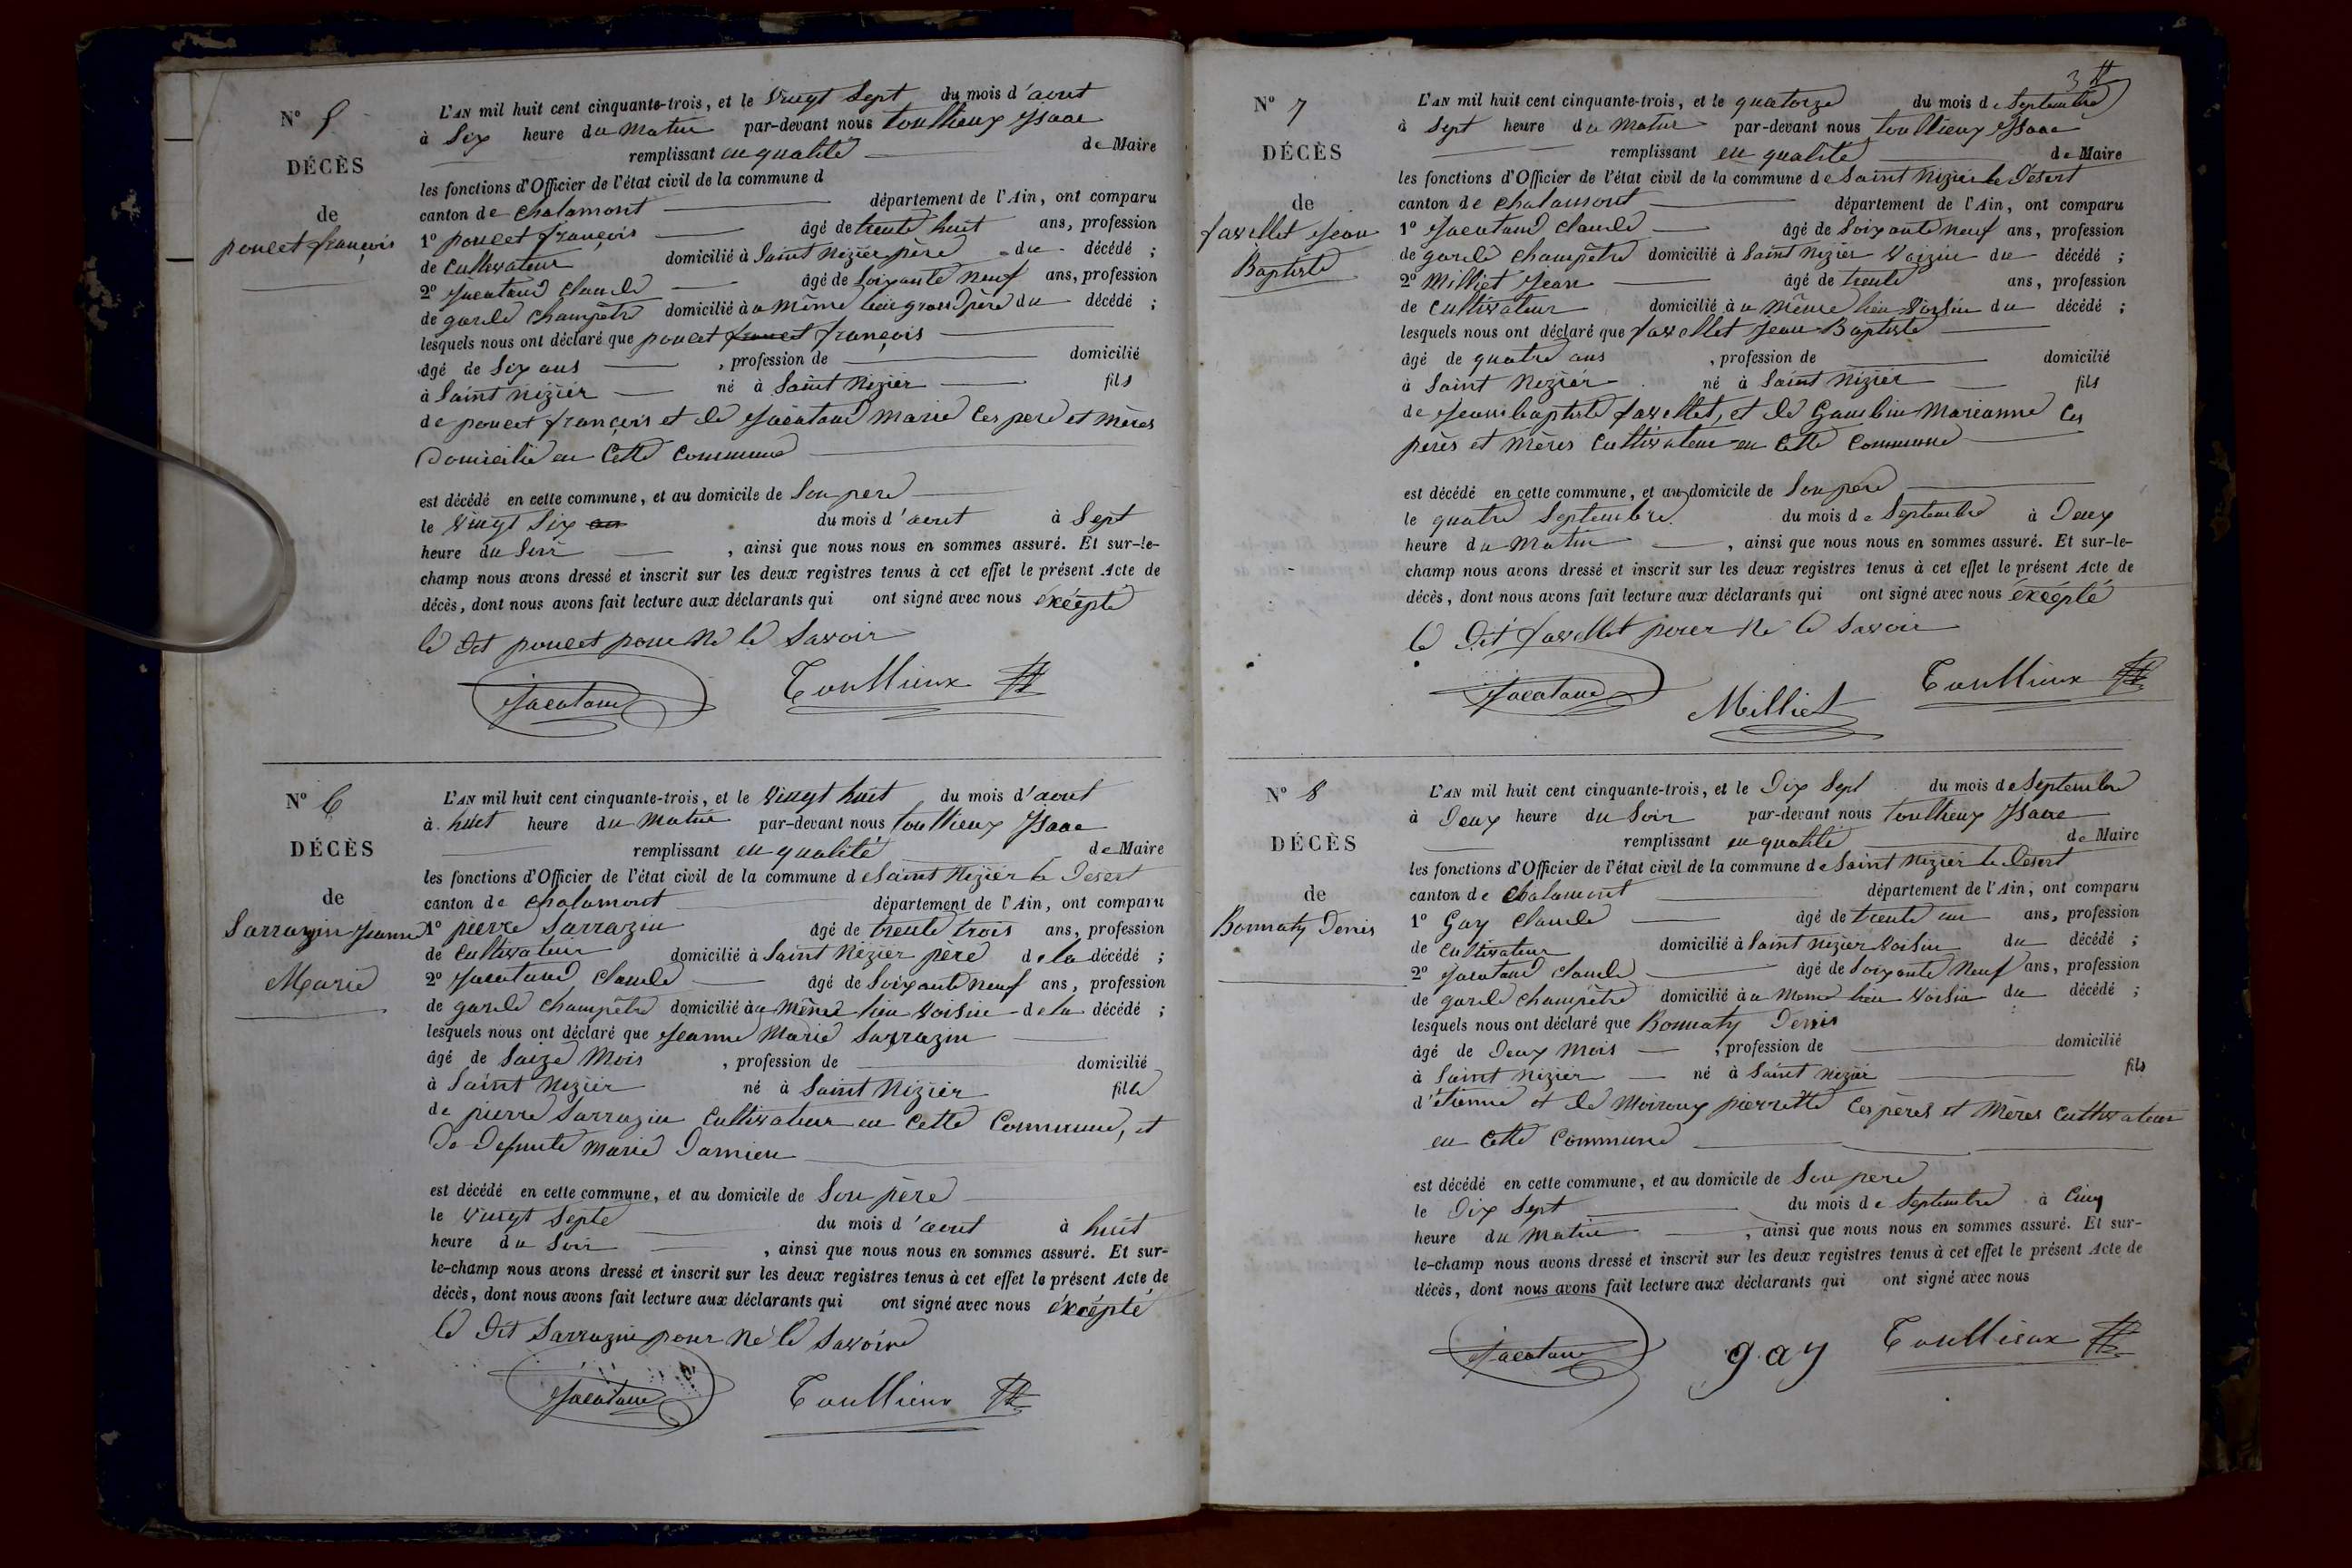 N° 5
DÉCÈS
de
poncet françois
L'AN mil huit cent cinquante-trois, et le vingt sept du mois d'aout
à six heure du matin par-devant nous toullieux Isaac
remplissant en qualité de Maire
les fonctions d'Officier de l'état civil de la commune d
canton de chalamont département de l'Ain, ont comparu
1° poncet françois âgé de trente huit ans, profession
de cultivateur domicilié à Saint Nizier père du décédé ;
2° Jacataud claude âgé de soixante neuf ans, profession
de garde champêtre domicilié au même lieu grand père du décédé ;
lesquels nous ont déclaré que poncet françois
âgé de six ans , profession de domicilié
à Saint Nizier né à Saint Nizier fils
de poncet françois et de Jacataud marie ces pere et mères
Domicilié en cette commune
est décédé en cette commune, et au domicile de son pere
le vingt six du mois d'aout à sept
heure du soir , ainsi que nous nous en sommes assuré. Et sur-le-
champ nous avons dressé et inscrit sur les deux registres tenus à cet effet le présent Acte de
décès, dont nous avons fait lecture aux déclarants qui ont signé avec nous éxcépté
le dit poncet pour ne le savoir
Jacataud Toullieux
N° 6
DÉCÈS
de
Sarrazin Jeanne
Marie
L'AN mil huit cent cinquante-trois, et le vingt huit du mois d'aout
à huit heure du matin par-devant nous toullieux Isaac
remplissant en qualité de Maire
les fonctions d'Officier de l'état civil de la commune de Saint Nizier le Desert
canton de chalamont département de l'Ain, ont comparu
1° pierre Sarrazin âgé de trente trois ans, profession
de cultivateur domicilié à Saint Nizier père de la décédé ;
2° Jacataud claude âgé de soixante neuf ans, profession
de garde champêtre domicilié au même lieu voisin de la décédé ;
lesquels nous ont déclaré que Jeanne Marie Sarrazin
âgé de saize mois , profession de domicilié
à Saint Nizier né à Saint Nizier fille
de pierre Sarrazin cultivateur en cette commune, et
De Defunte marie Damien
est décédé en cette commune, et au domicile de son père
le vingt septe du mois d'aout à huit
heure du soir , ainsi que nous nous en sommes assuré. Et sur-
le-champ nous avons dressé et inscrit sur les deux registres tenus à cet effet le présent Acte de
décès, dont nous avons fait lecture aux déclarants qui ont signé avec nous éxcépté
le dit Sarrazin pour ne le savoire
Jacataud Toullieux
3
N° 7
DÉCÈS
de
favellet Jean
Baptiste
L'AN mil huit cent cinquante-trois, et le quatorze du mois de Septembre
à sept heure du matin par-devant nous toullieux Isaac
remplissant en qualité de Maire
les fonctions d'Officier de l'état civil de la commune de Saint Nizier le Desert
canton de chalamont département de l'Ain, ont comparu
1° Jacataud claude âgé de soixante neuf ans, profession
de garde champêtre domicilié à Saint Nizier voizin du décédé ;
2° Milliet Jean âgé de trente ans, profession
de cultivateur domicilié au même lieu voisin du décédé ;
lesquels nous ont déclaré que favellet Jean Baptiste
âgé de quatre ans , profession de domicilié
à Saint Nizier né à Saint Nizier fils
de Jean baptiste favellet, et de Gambin Marianne ces
pères et mères cultivateur en cette commune
est décédé en cette commune, et au domicile de son père
le quatre Septembre du mois de Septembre à Deux
heure du matin , ainsi que nous nous en sommes assuré. Et sur-le-
champ nous avons dressé et inscrit sur les deux registres tenus à cet effet le présent Acte de
décès, dont nous avons fait lecture aux déclarants qui ont signé avec nous éxcépté
le Dit favellet pour ne le savoir
Jacataud Milliet Toullieux
N° 8
DÉCÈS
de
Bonnaty Denis
L'AN mil huit cent cinquante-trois, et le Dix sept du mois de Septembre
à Deux heure du soir par-devant nous toullieux Isaac
remplissant en qualité de Maire
les fonctions d'Officier de l'état civil de la commune de Saint Nizier le Desert
canton de chalamont département de l'Ain, ont comparu
1° Gay claude âgé de trente un ans, profession
de cultivateur domicilié à Saint Nizier voisin du décédé ;
2° Jacataud claude âgé de soixante neuf ans, profession
de garde champêtre domicilié au même lieu voisin du décédé ;
lesquels nous ont déclaré que Bonnaty Denis
âgé de Deux mois , profession de domicilié
à Saint Nizier né à Saint Nizier fils
d'étienne et de Moiroux pierrette ces pères et mères cultivateur
en cette commune
est décédé en cette commune, et au domicile de son pere
le Dix sept du mois de Septembre à cinq
heure du matin , ainsi que nous nous en sommes assuré. Et sur-
le-champ nous avons dressé et inscrit sur les deux registres tenus à cet effet le présent Acte de
décès, dont nous avons fait lecture aux déclarants qui ont signé avec nous
Jacataud gay Toullieux